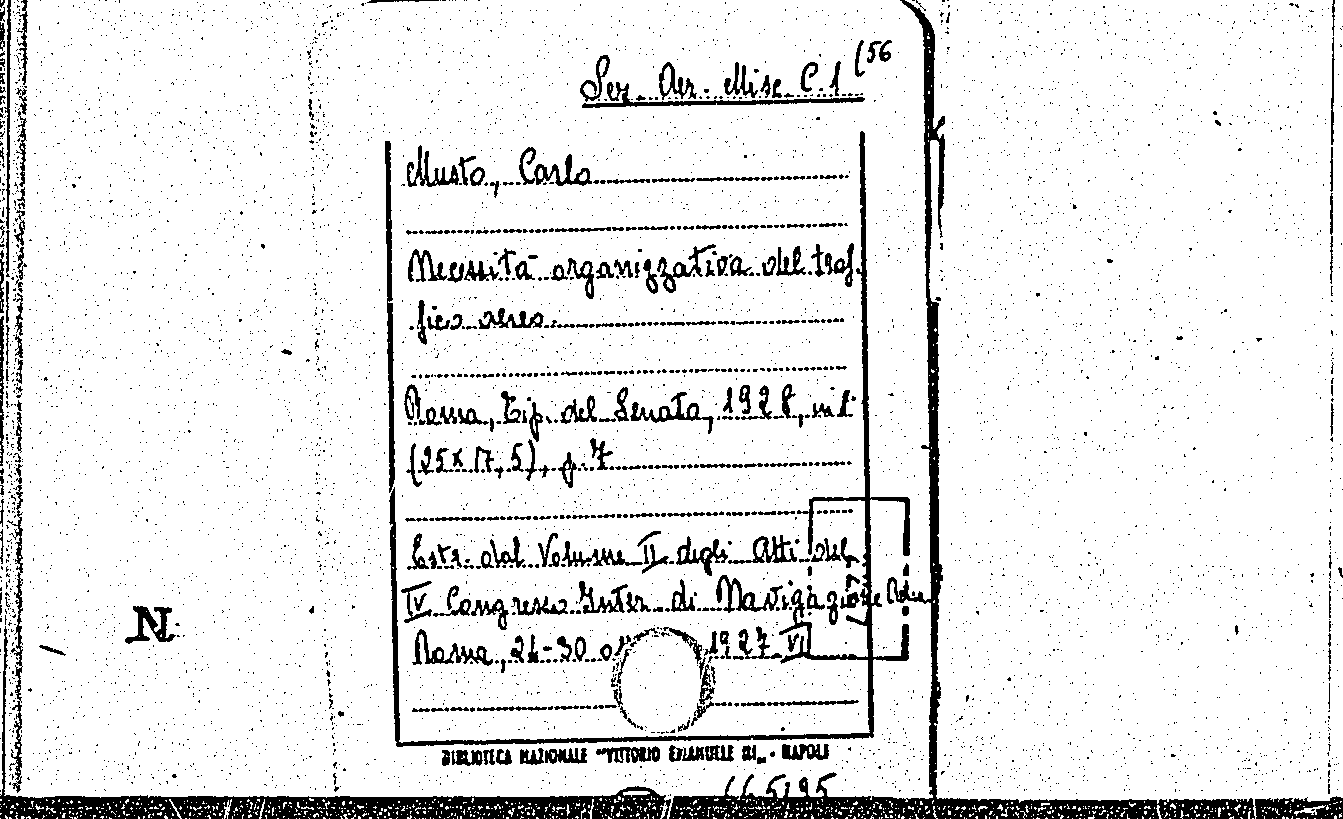 Sez. Aer. Misc. C. 1 (56
Musto, Carlo
Necessità organizzativa del traf-
fico aereo.
Roma, Tip. del Senato, 1928, in 8°
(25x17,5), p. 7
Estr. dal Volume II degli Atti del
IV Congresso Inter. di Navigazione
N
Roma, 24-30 1927 VI
BIBLIOTECA NAZIONALE "VITTORIO EMANUELE III" - NAPOLI